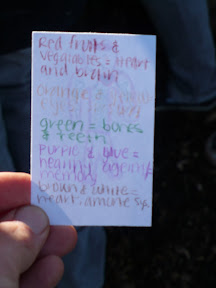 Red fruits &
vegtables = Heart
and brain
orange &
eyes
green = bones
& teeth
purple & blue =
healthy ageing
memory
brown & white =
heart, imune sys